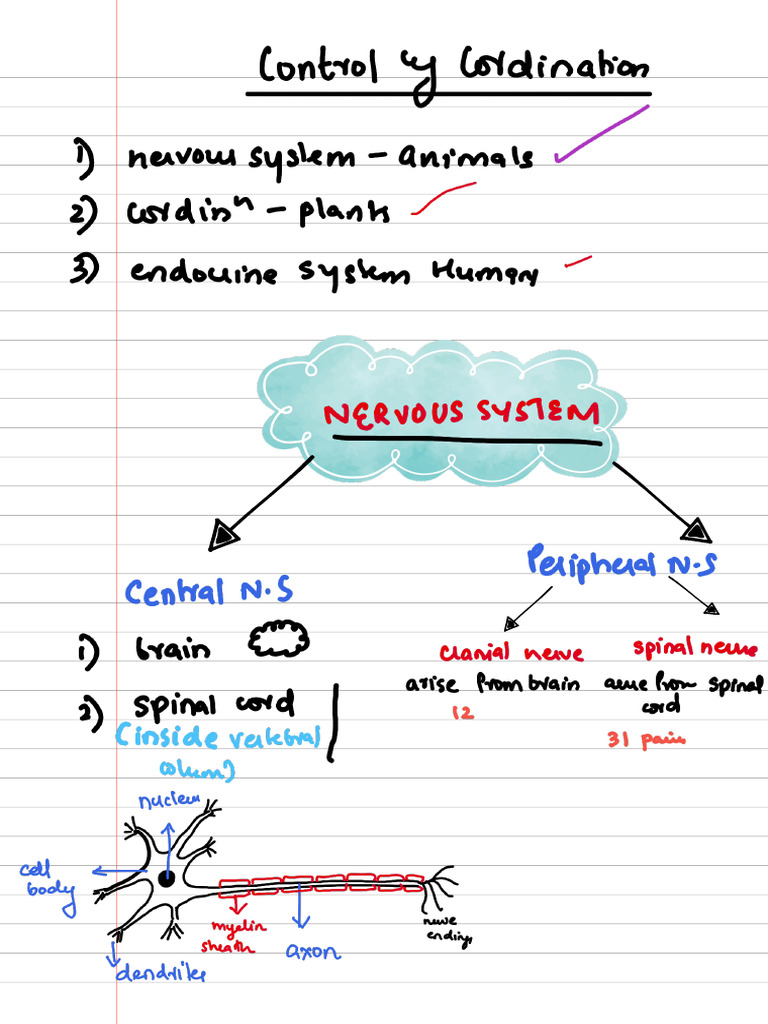 Control & Cordination
1) nervous system - animals
2) cordinⁿ - plants
3) endocrine system Human
NERVOUS SYSTEM
Central N.S
Peripheral N.S
1) brain
2) spinal cord
(inside vertebral
colum)
cranial nerve
arise from brain
12
spinal nerve
arise from spinal
cord
31 pairs
nucleus
cell
body
dendrites
myelin
sheath
axon
nerve
endings